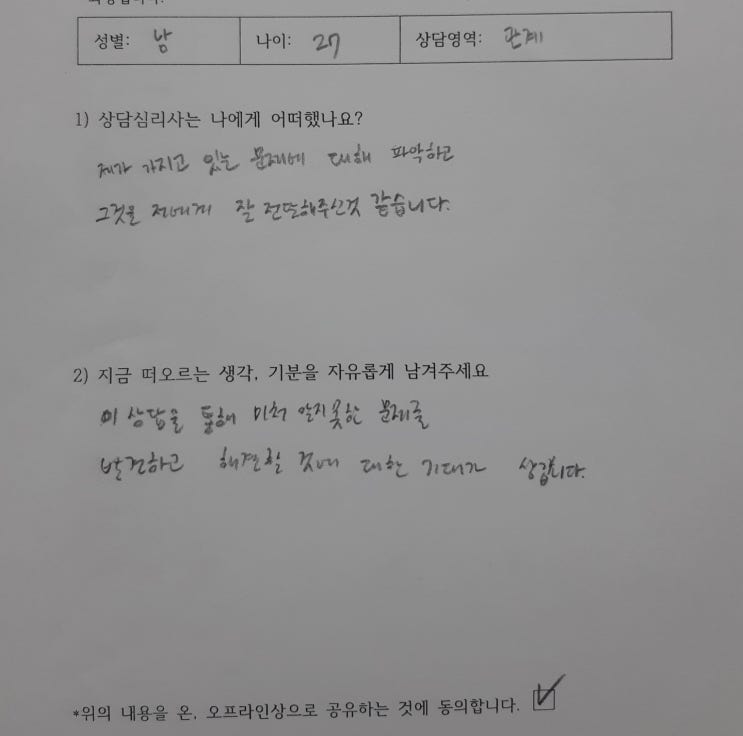 성별: 남 나이: 27 상담영역: 관계
1) 상담심리사는 나에게 어떠했나요?
제가 가지고 있는 문제에 대해 파악하고
그것을 저에게 잘 전달해주신것 같습니다.
2) 지금 떠오르는 생각, 기분을 자유롭게 남겨주세요
이 상담을 통해 미처 알지못한 문제를
발견하고 해결할 것에 대한 기대가 생깁니다.
*위의 내용을 온, 오프라인상으로 공유하는 것에 동의합니다.